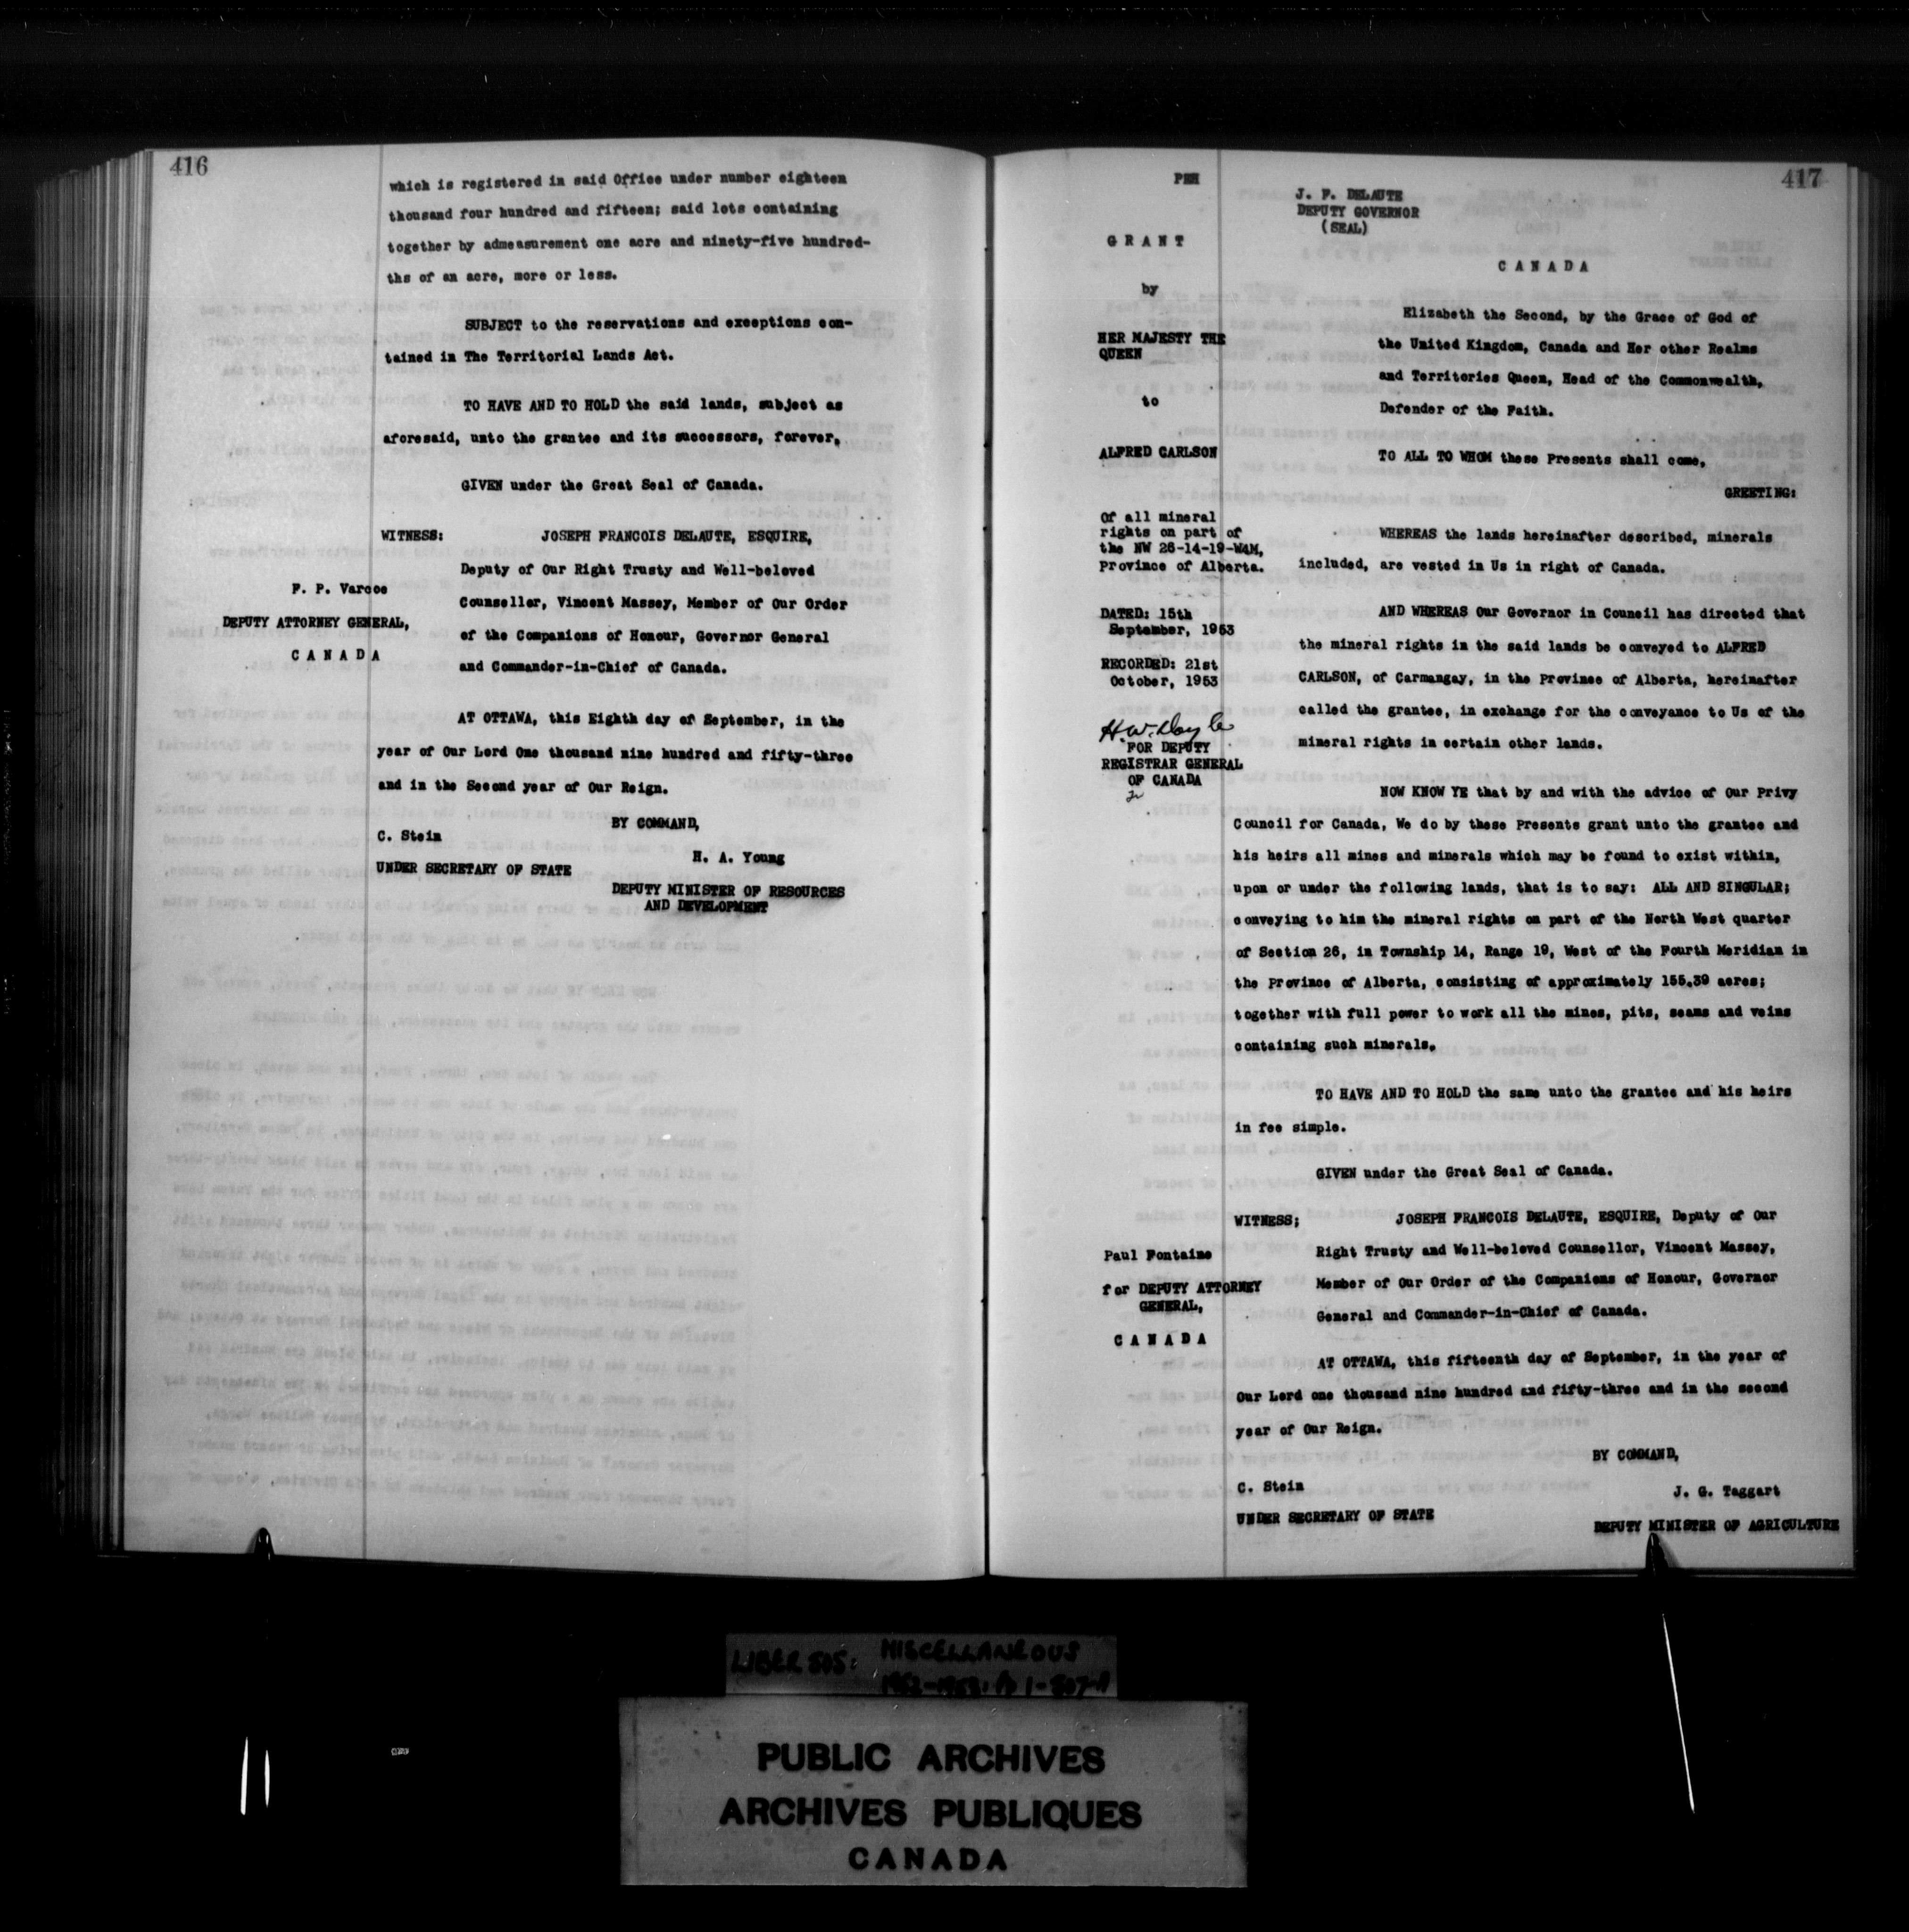 416
which is registered in said Office under number eighteen
thousand four hundred and fifteen; said lots containing
together by admeasurement one acre and ninety-five hundred-
ths of an acre, more or less.
SUBJECT to the reservations and exceptions con-
tained in The Territorial Lands Act.
TO HAVE AND TO HOLD the said lands, subject as
aforesaid, unto the grantee and its successors, forever,
GIVEN under the Great Seal of Canada.
WITNESS: JOSEPH FRANCOIS DELAUTE, ESQUIRE,
Deputy of Our Right Trusty and Well-beloved
Counsellor, Vincent Massey, Member of Our Order
of the Companions of Honour, Governor General
and Commander-in-Chief of Canada.
F. P. Varcoe
DEPUTY ATTORNEY GENERAL,
CANADA
AT OTTAWA, this Eighth day of September, in the
year of Our Lord One thousand nine hundred and fifty-three
and in the Second year of Our Reign.
BY COMMAND,
C. Stein
UNDER SECRETARY OF STATE
H. A. Young
DEPUTY MINISTER OF RESOURCES
AND DEVELOPMENT
417
PEH
GRANT
by
HER MAJESTY THE
QUEEN
to
ALFRED CARLSON
Of all mineral
rights on part of
the NW 26-14-19-W4M,
Province of Alberta.
DATED: 15th
September, 1953
RECORDED: 21st
October, 1953
H.W. Doyle
FOR DEPUTY
REGISTRAR GENERAL
OF CANADA
J. F. DELAUTE
DEPUTY GOVERNOR
(SEAL)
CANADA
Elizabeth the Second, by the Grace of God of
the United Kingdom, Canada and Her other Realms
and Territories Queen, Head of the Commonwealth,
Defender of the Faith.
TO ALL TO WHOM these Presents shall come,
GREETING:
WHEREAS the lands hereinafter described, minerals
included, are vested in Us in right of Canada.
AND WHEREAS Our Governor in Council has directed that
the mineral rights in the said lands be conveyed to ALFRED
CARLSON, of Carmangay, in the Province of Alberta, hereinafter
called the grantee, in exchange for the conveyance to Us of the
mineral rights in certain other lands.
NOW KNOW YE that by and with the advice of Our Privy
Council for Canada, We do by these Presents grant unto the grantee and
his heirs all mines and minerals which may be found to exist within,
upon or under the following lands, that is to say: ALL AND SINGULAR;
conveying to him the mineral rights on part of the North West quarter
of Section 26, in Township 14, Range 19, West of the Fourth Meridian in
the Province of Alberta, consisting of approximately 155.39 acres;
together with full power to work all the mines, pits, seams and veins
containing such minerals.
TO HAVE AND TO HOLD the same unto the grantee and his heirs
in fee simple.
GIVEN under the Great Seal of Canada.
WITNESS; JOSEPH FRANCOIS DELAUTE, ESQUIRE, Deputy of Our
Right Trusty and Well-beloved Counsellor, Vincent Massey,
Member of Our Order of the Companions of Honour, Governor
General and Commander-in-Chief of Canada.
Paul Fontaine
for DEPUTY ATTORNEY
GENERAL,
CANADA
AT OTTAWA, this fifteenth day of September, in the year of
Our Lord one thousand nine hundred and fifty-three and in the second
year of Our Reign.
BY COMMAND,
C. Stein
UNDER SECRETARY OF STATE
J. G. Taggart
DEPUTY MINISTER OF AGRICULTURE
LIBER 505: MISCELLANEOUS
1952-1953: 1-507-A
PUBLIC ARCHIVES
ARCHIVES PUBLIQUES
CANADA